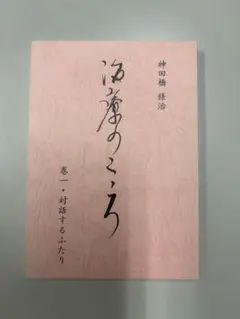 神田橋 條治
治療のこころ
巻一・対話するふたり